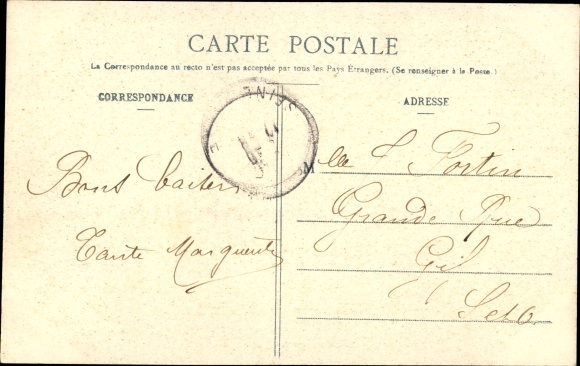 CARTE POSTALE
La Correspondance au recto n'est pas acceptée par tous les Pays Étrangers. (Se renseigner à la Poste.)
CORRESPONDANCE
ADRESSE
SEINE
Bons baisers
Tante Marguerite
Mlle S Fortin
Grande Rue
Gif
S et O